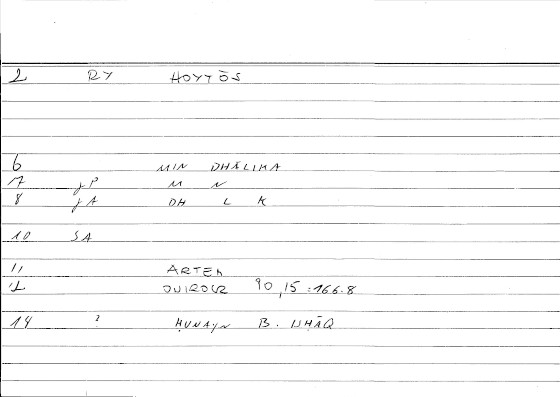 2 RY HOYTŌS
6 MIN DHĀLIKA
7 JP M N
8 JA DH L K
10 SA
11 ARTEM
12 90,15:166.8
14 ? ḤUNAYN B. ISḤĀQ